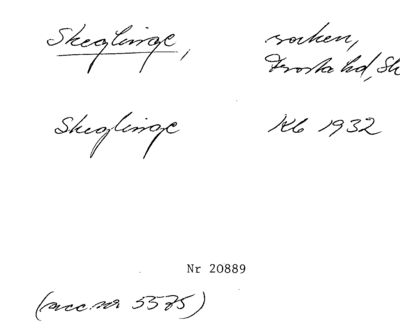 Skeglinge, socken,
Frosta hd, Sk
Skeglinge Kb 1932
Nr 20889
(acc nr 5575)